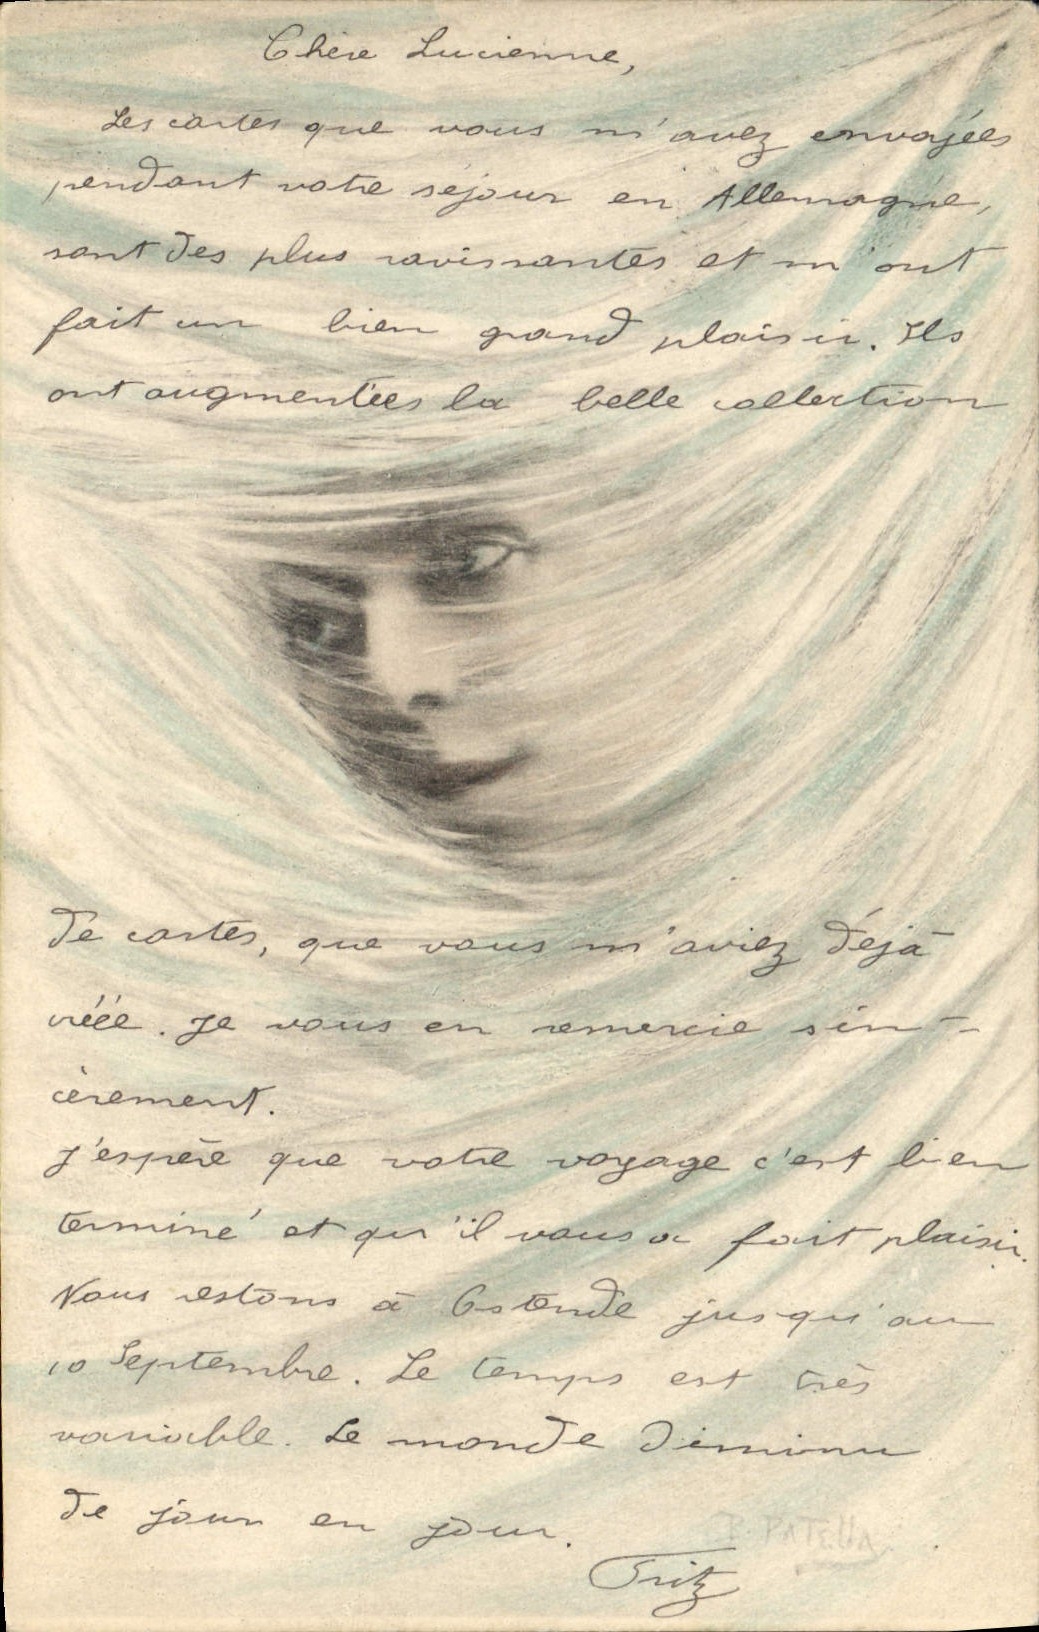 Chère Lucienne,
Les cartes que vous m'avez envoyées
pendant votre séjour en Allemagne,
sont des plus ravissantes et m'ont
fait un bien grand plaisir. Ils
ont augmentées la belle collection
de cartes, que vous m'aviez déjà
créée. Je vous en remercie sin-
cèrement.
J'espère que votre voyage c'est bien
terminé et qu'il vous a fait plaisir.
Nous restons à Ostende jusqu'au
10 Septembre. Le temps est très
variable. Le monde diminu
de jour en jour.
Fritz